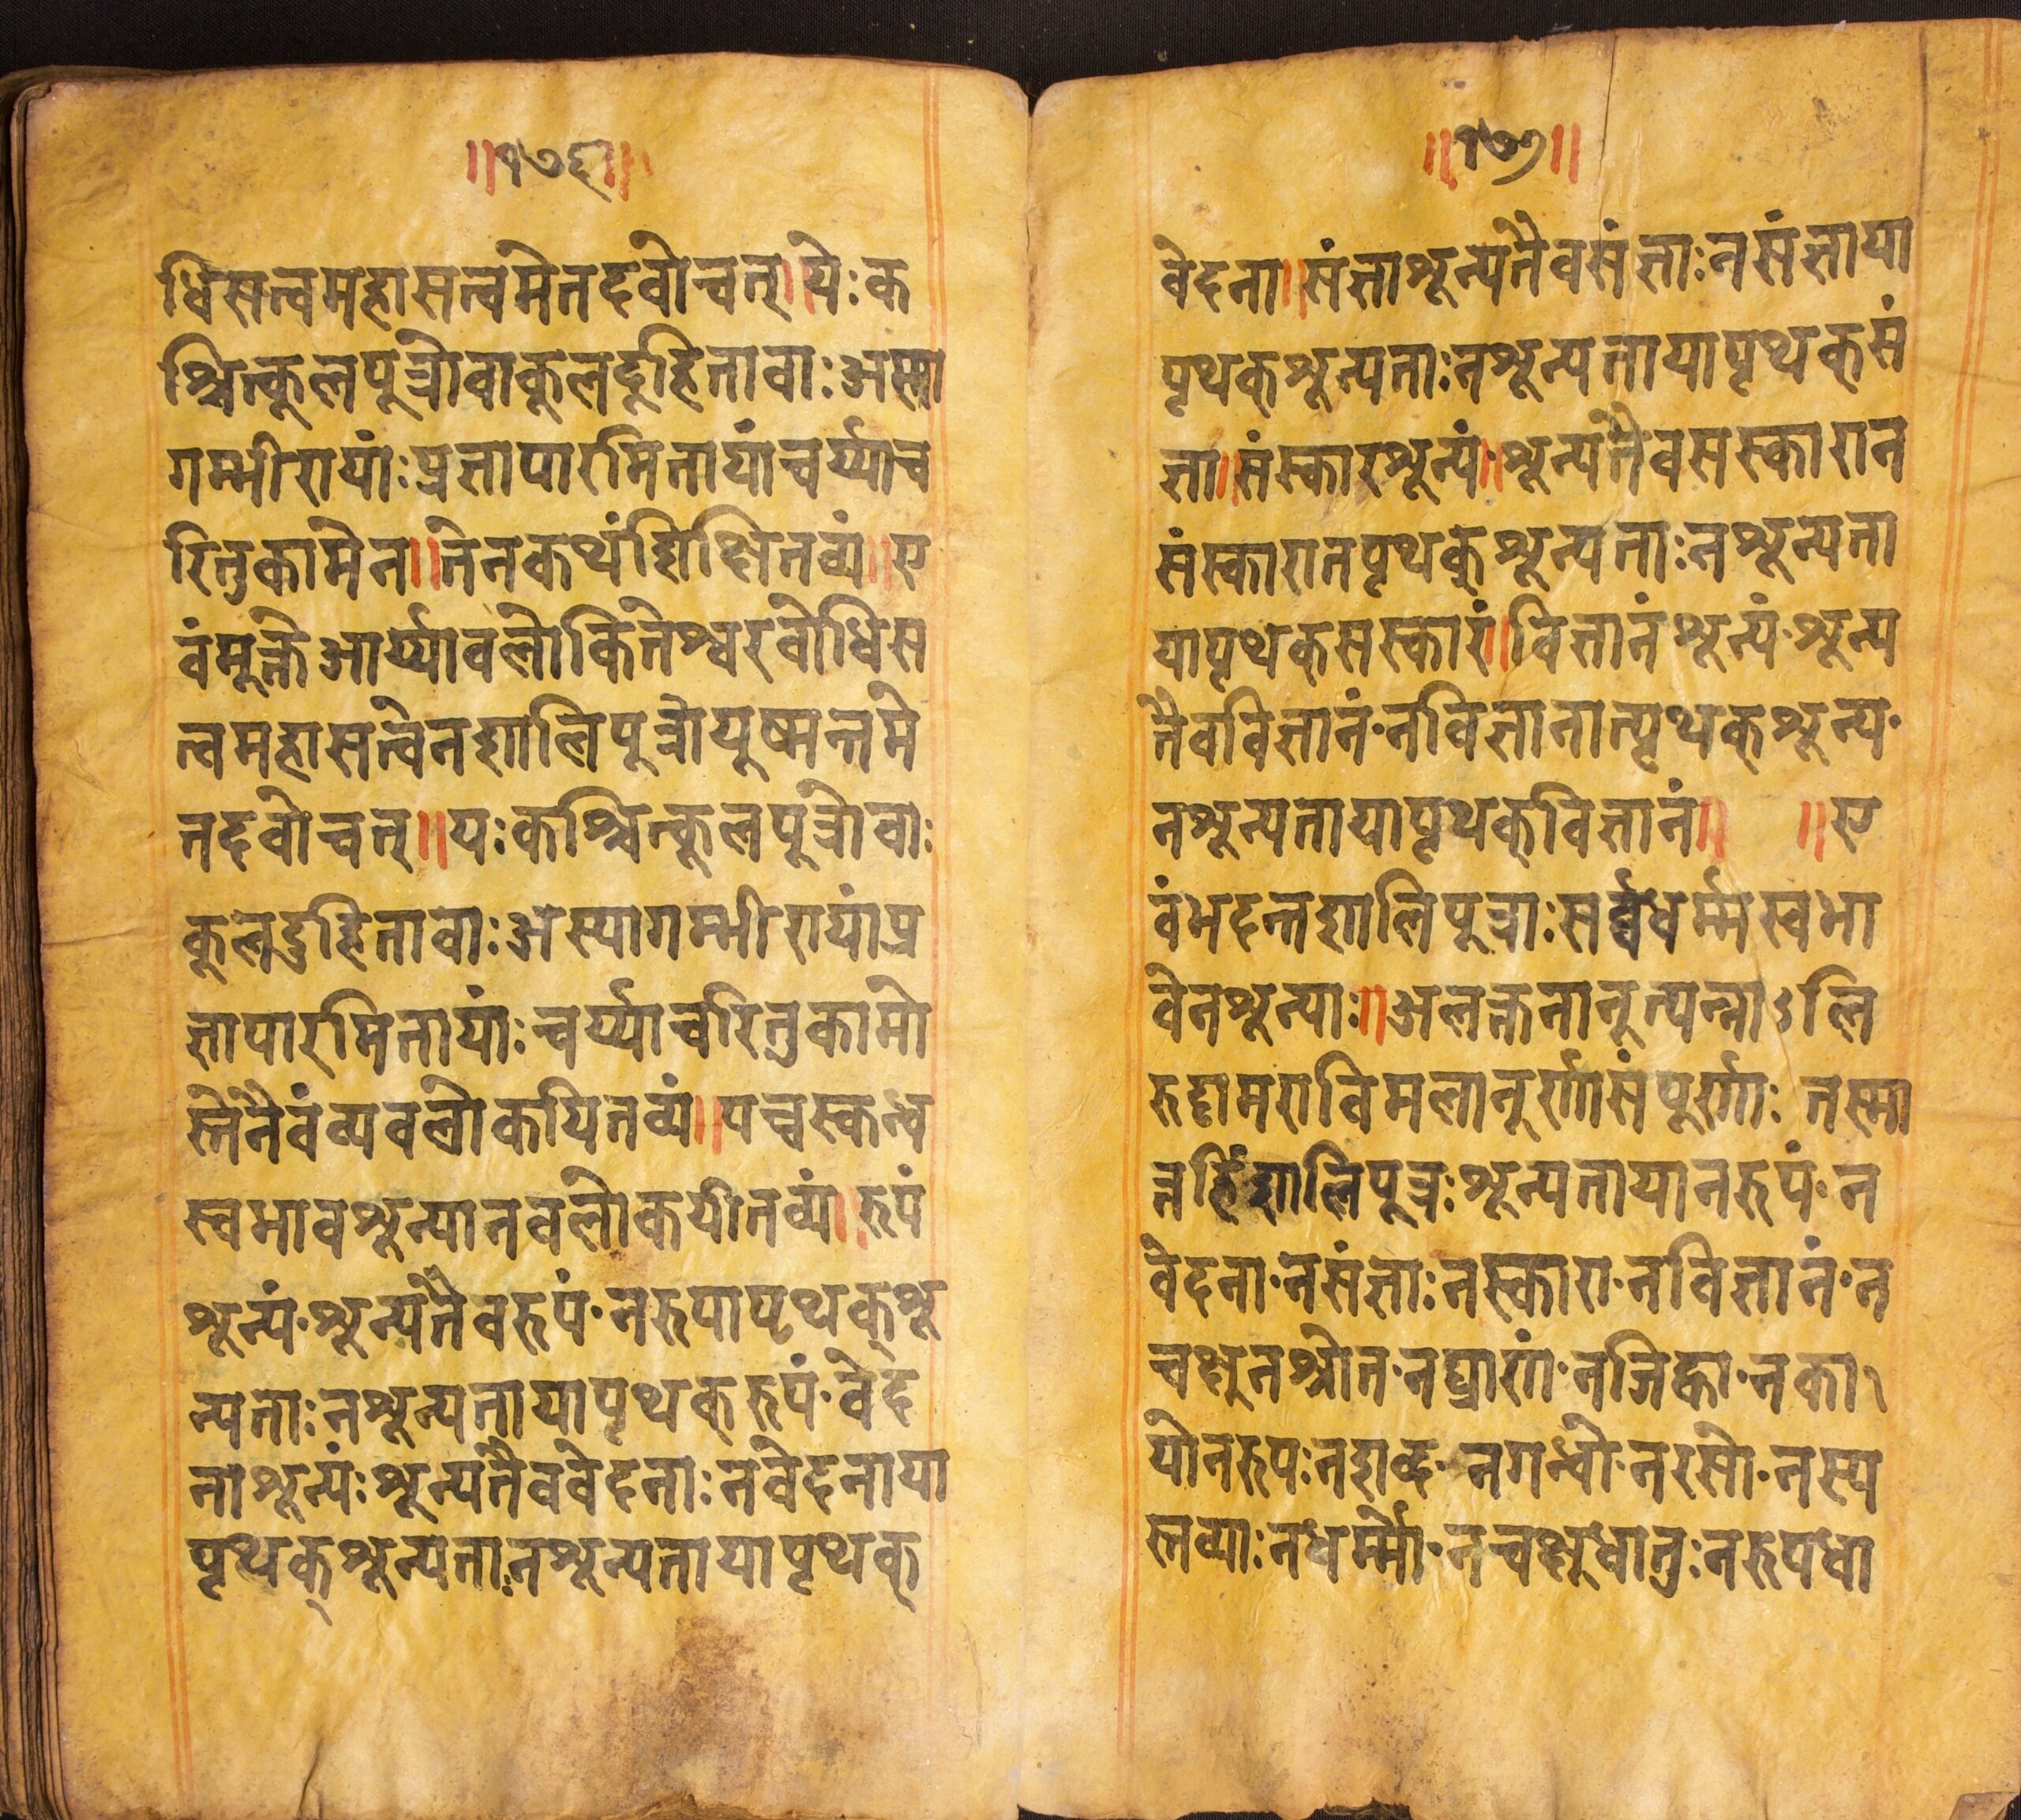 ॥१७६॥
धिसत्वमहासत्वमेतदवोचत्॥ये:क
श्चित्कूलपूत्रोवाकूलदूहितावा:अस्या
गम्भीरायां:प्रज्ञापारमितायांचर्य्याच
रितुकामेन॥तेनकथंशिक्षितव्यं॥ए
वंमूक्तेआर्य्यावलोकितेश्वरवोधिस
त्वमहासत्वेनशालिपूत्रोयूष्मन्तमे
तदवोचत्॥य:कश्चित्कूलपूत्रोवा:
कूलदुहितावा:अस्यागम्भीरायांप्र
ज्ञापारमितायां:चर्य्याचरितुकामो
स्तेनैवंव्यवलोकयितव्यं॥पञ्चस्कन्ध
स्वभावश्रून्यानवलोकयीतव्यं॥रूपं
श्रून्यं·श्रून्यतैवरूपं·नरूपापृथक्श्रू
न्यता:नश्रून्यतायापृथक्रूपं·वेद
नाश्रून्यं:श्रून्यतैववेदना:नवेदनाया
पृथक्श्रून्यता:नश्रून्यतायापृथक्
॥१७७॥
वेदना॥संज्ञाश्रून्यतैवसंज्ञा:नसंज्ञाया
पृथक्श्रून्यता:नश्रून्यतायापृथक्सं
ज्ञा॥संस्कारश्रून्यं॥श्रून्यतैवसस्कारान
संस्कारातपृथक्श्रून्यता:नश्रून्यता
यापृथक्सस्कारं॥विज्ञानंश्रून्यं·श्रून्य
तैवविज्ञानं·नविज्ञानात्पृथक्श्रून्य·
नश्रून्यतायापृथक्विज्ञानं॥ ॥ए
वंभदन्तशालिपूत्रा:सर्व्वधर्म्मस्वभा
वेनश्रून्या:॥अलक्षनानूत्पन्नाऽनि
रुद्धामराविमलानूर्णासंपूर्णा: तस्मा
त्तर्हिंशालिपूत्र:श्रून्यतायानरूपं·न
वेदना·नसंज्ञा:नस्कारा·नविज्ञानं·न
चक्षुनश्रोत·नघ्राणं·नजिह्वा·नका
योनरूप:नशब्द·नगन्धो·नरसो·नस्प
स्तव्या:नधर्म्मो·नचक्षूधातु:नरूपधा